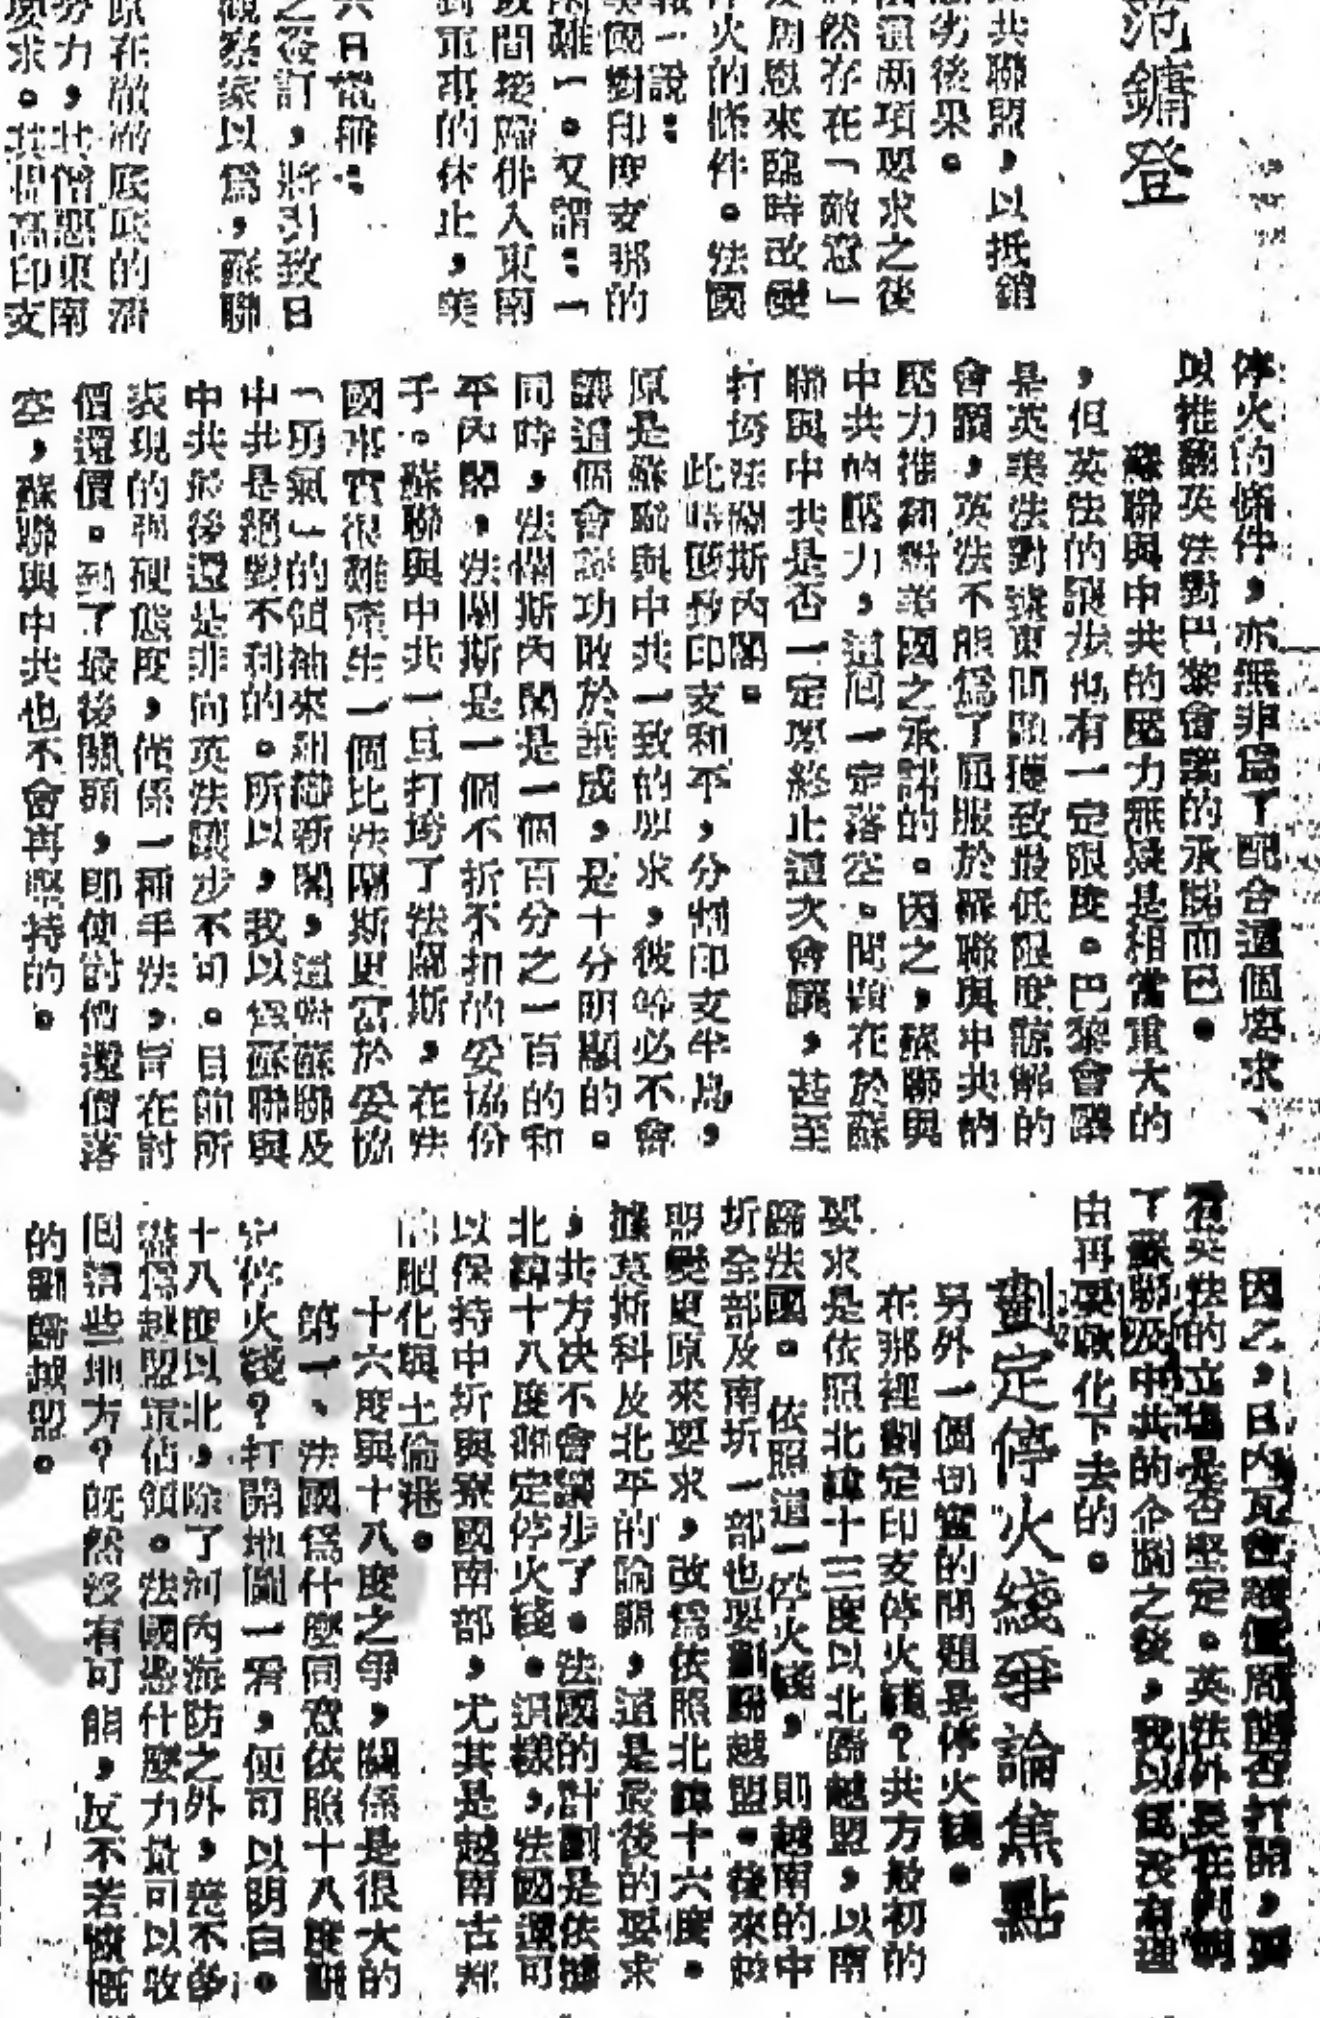 范鏞登
共聯盟，以抵銷
劣後果。
兩項要求之後
然存在「敵意」
周恩來臨時改變
火的條件。法國
一說：
國對印度支那的
難一。又謂：一
間接歸併入東南
到軍事的休止，美
六日電稱：
之簽訂，將引致日
觀察家以為，蘇聯
原在徹底的清
努力，共憎惡東南
要求。其提高印支
停火的條件，亦無非為了配合這個要求、
以推翻英法對巴黎會議的承諾而已。
蘇聯與中共的壓力無疑是相當重大的
，但英法的讓步也有一定限度。巴黎會議
是英美法對遠東問題獲致最低限度諒解的
會議，英法不能為了屈服於蘇聯與中共的
壓力推翻對美國之承諾的。因之，蘇聯與
中共的壓力，這回一定落空。問題在於蘇
聯與中共是否一定要終止這次會議，甚至
打垮法蘭斯內閣。
此時談到印支和平，分割印支半島，
原是蘇聯與中共一致的要求，彼等必不會
讓這個會議功敗於垂成，是十分明顯的。
同時，法蘭斯內閣是一個百分之一百的和
平內閣，法蘭斯是一個不折不扣的妥協份
子。蘇聯與中共一旦打垮了法蘭斯，在法
國事實很難產生一個比法蘭斯更富於妥協
「勇氣」的領袖來組織新閣，這對蘇聯及
中共是絕對不利的。所以，我以為蘇聯與
中共最後還是非向英法讓步不可。目前所
表現的強硬態度，祇係一種手法，旨在討
價還價。到了最後關頭，即使討價還價落
空，蘇聯與中共也不會再堅持的。
因之，日內瓦會議僵局能否打開，要
看英法的立場是否堅定。英法外長在判明
了蘇聯及中共的企圖之後，我以為沒有理
由再要軟化下去的。
劃定停火綫爭論焦點
另外一個切實的問題是停火綫。
在那裡劃定印支停火綫？共方最初的
要求是依照北緯十三度以北歸越盟，以南
歸法國。依照這一停火綫，則越南的中
圻全部及南圻一部也要劃歸越盟。後來
變更原來要求，改為依照北緯十六度。
據莫斯科及北平的論調，這是最後的要求
，共方決不會讓步了。法國的計劃是依據
北緯十八度劃定停火綫。這樣，法國還可
以保持中圻與寮國南部，尤其是越南古都
的順化與土倫港。
十六度與十八度之爭，關係是很大的
第一、法國為什麼同意依照十八度劃
定停火綫？打開地圖一看，便可以明白。
十八度以北，除了河內海防之外，幾
為越盟軍佔領。法國憑什麼力量可以收
回這些地方？既然沒有可能，反不若慷慨
的劃歸越盟。